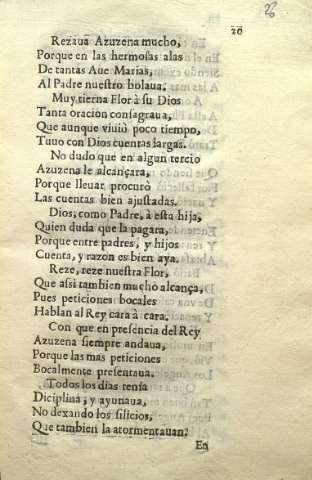 26
20
Rezauā Azuzena mucho,
Porque en las hermosas alas
De tantas Aue Marias,
Al Padre nuestro bolaua.
Muy tierna Flor à su Dios
Tanta oracion consagraua,
Que aunque viuiò poco tiempo,
Tuuo con Dios cuentas largas.
No dudo que en algun tercio
Azuzena le alcançara,
Porque lleuar procurò
Las cuentas bien ajustadas.
Dios, como Padre, à esta hija,
Quien duda que la pagara,
Porque entre padres, y hijos
Cuenta, y razon es bien aya.
Reze, reze nuestra Flor,
Que assi tambien mucho alcança,
Pues peticiones bocales
Hablan al Rey cara à cara.
Con que en presencia del Rey
Azuzena siempre andaua,
Porque las mas peticiones
Bocalmente presentaua.
Todos los dias tenia
Diciplina, y ayunaua,
No dexando los silicios,
Que tambien la atormentauan.
En